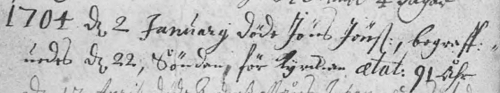 1704 dχ 2 January döde Jöns Jönss:, begraff:
uedes dχ 22, Söndan, för Kyrkian ætat: 91 Åhr